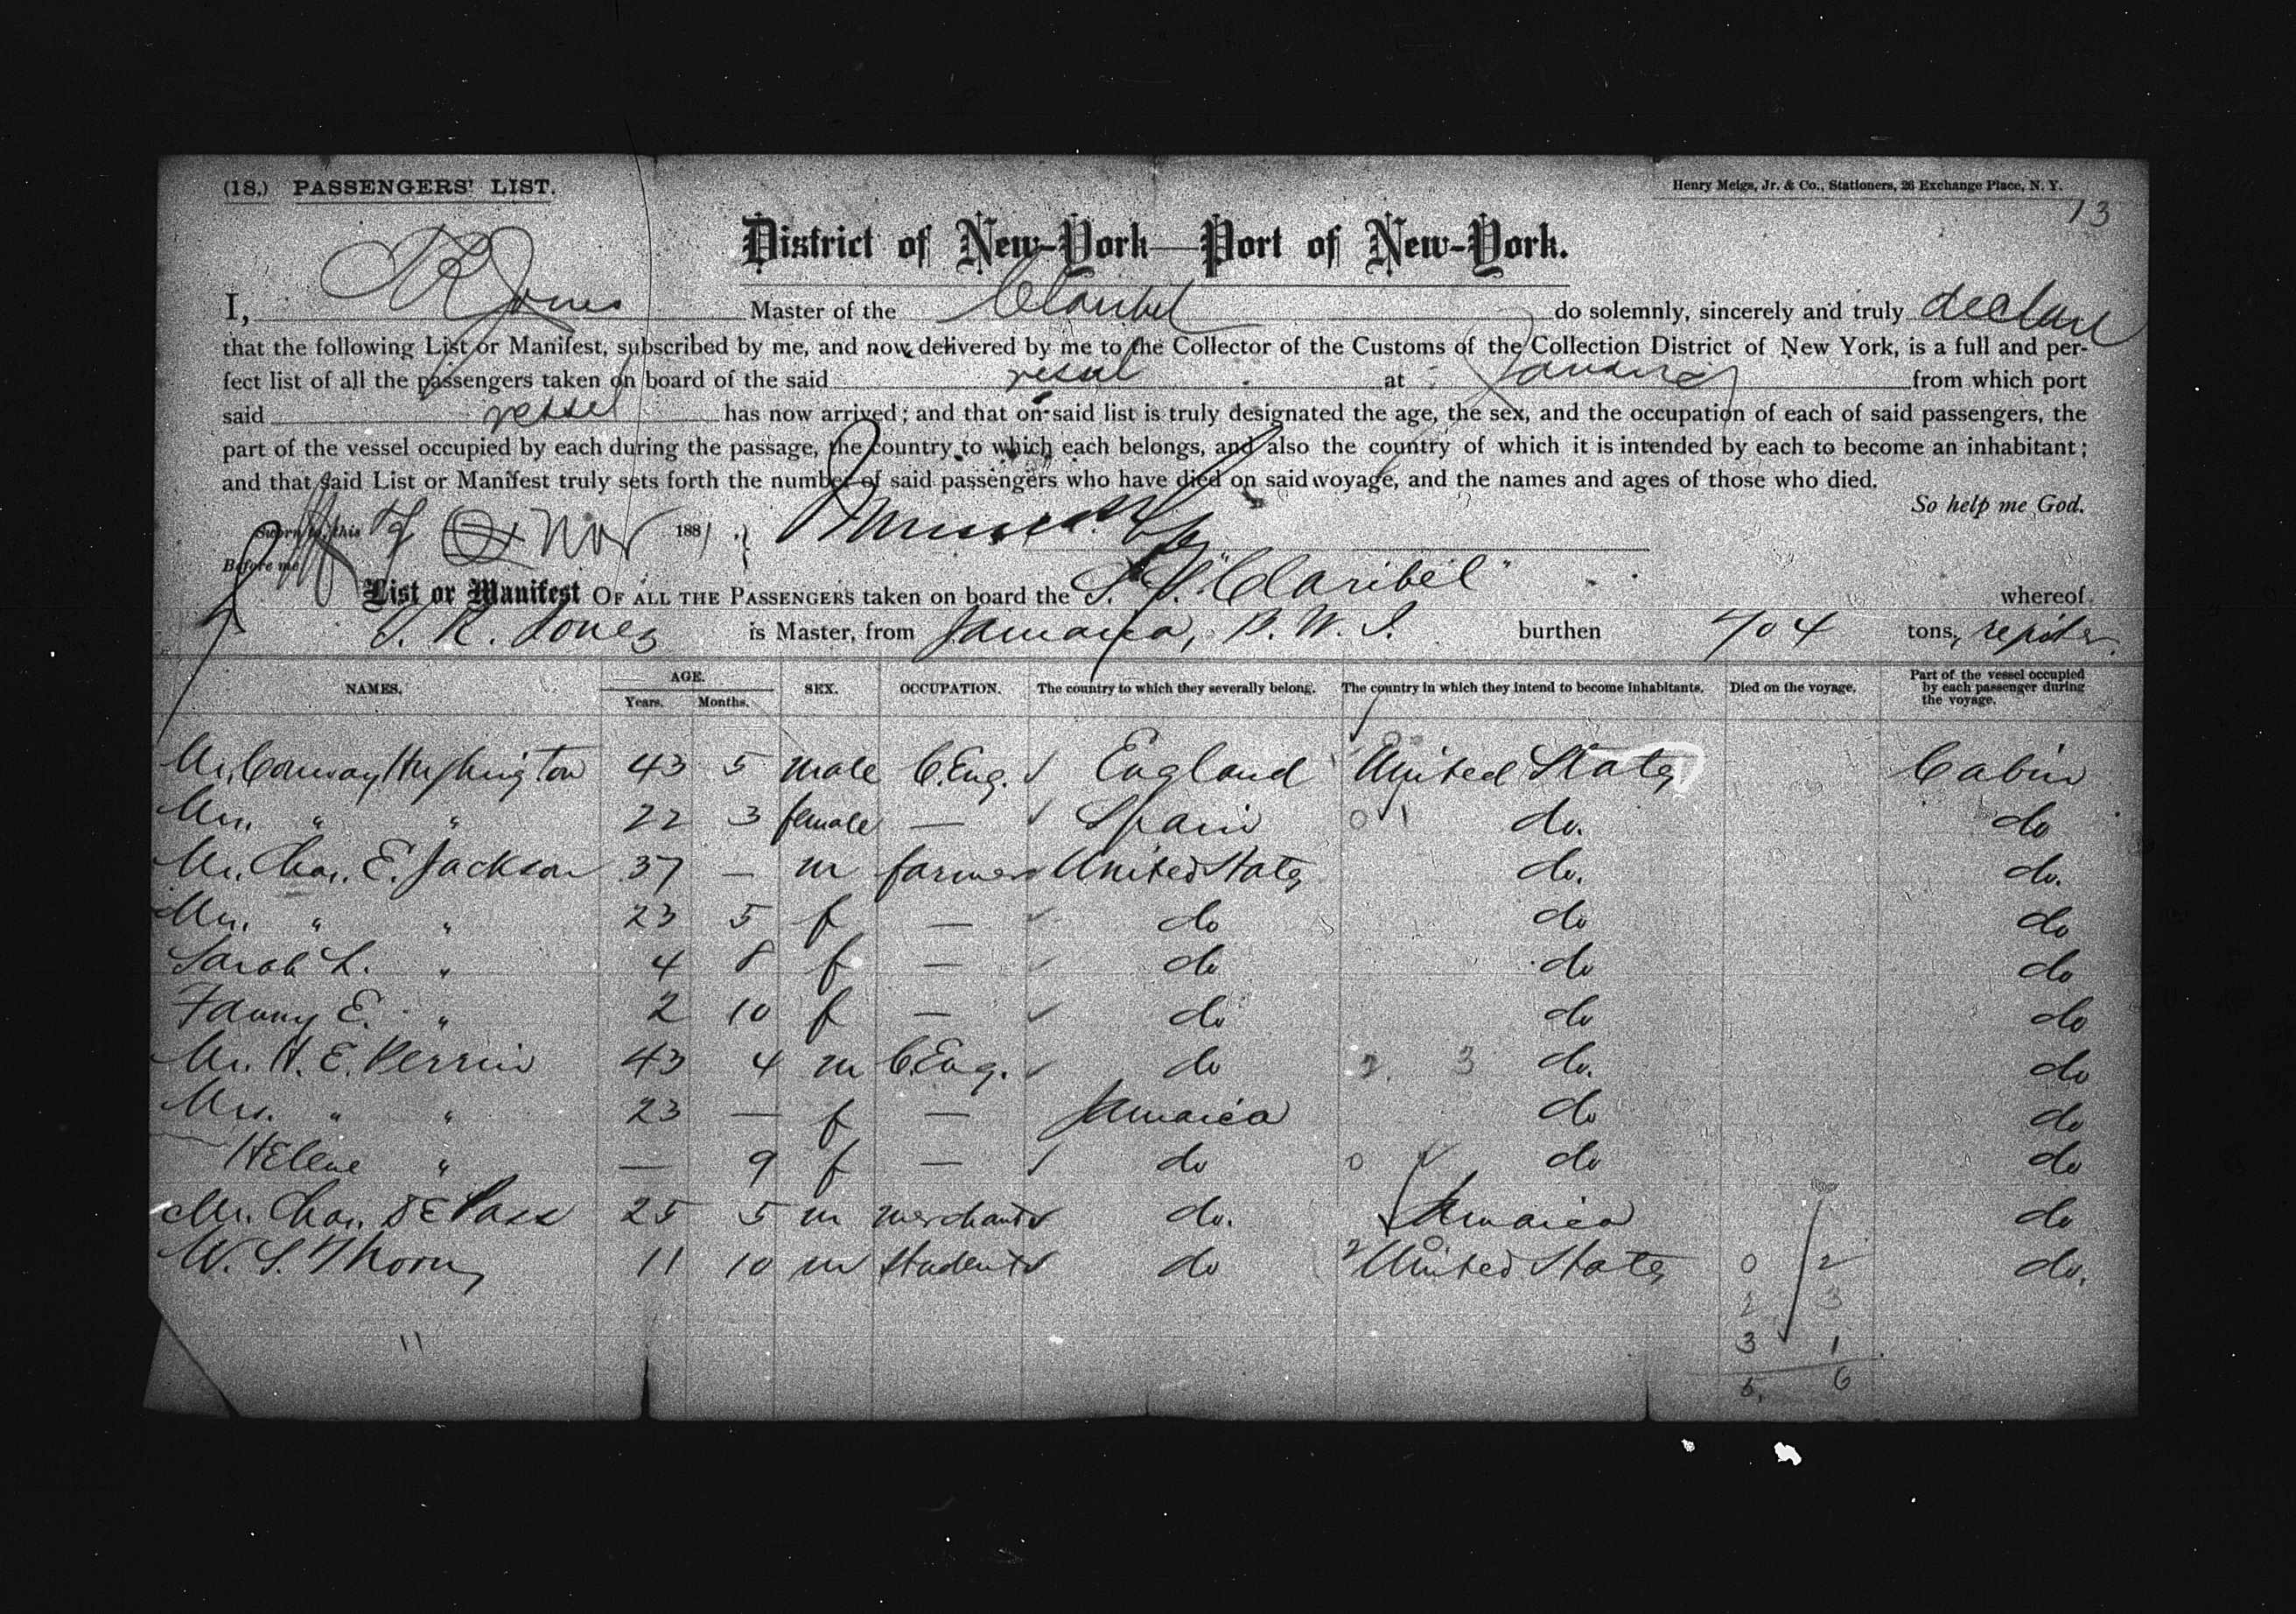 (18.) PASSENGERS' LIST.
Henry Meigs, Jr. & Co., Stationers, 26 Exchange Place, N. Y.
13
District of New-York—Port of New-York.
I, Jones Master of the Claribel do solemnly, sincerely and truly declare
that the following List or Manifest, subscribed by me, and now delivered by me to the Collector of the Customs of the Collection District of New York, is a full and per-
fect list of all the passengers taken on board of the said vessel at Savana from which port
said vessel has now arrived; and that on said list is truly designated the age, the sex, and the occupation of each of said passengers, the
part of the vessel occupied by each during the passage, the country to which each belongs, and also the country of which it is intended by each to become an inhabitant;
and that said List or Manifest truly sets forth the number of said passengers who have died on said voyage, and the names and ages of those who died.
So help me God.
Sworn to, this Nov 1881
Before me
List or Manifest OF ALL THE PASSENGERS taken on board the S. S. "Claribel" whereof
J. R. Jones is Master, from Jamaica, B. W. I. burthen 704 tons,
NAMES. AGE. Years. Months. SEX. OCCUPATION. The country to which they severally belong. The country in which they intend to become inhabitants. Died on the voyage. Part of the vessel occupied by each passenger during the voyage.
Mr. Conway 43 5 male C. Eng. England United States Cabin
Mrs. " " 22 3 female — Spain 0 do. do
Mr. Chas. E. Jackson 37 — m farmer United States do. do.
Mrs. " " 23 5 f — do do do
Sarah L. " 4 8 f — do do do
Fanny E. " 2 10 f — do do do
Mr. H. E. Perrin 43 4 m C. Eng. do 2 3 do. do
Mrs. " " 23 — f — Jamaica do do
Helene " — 9 f — do 0 do do
Mr. Chas. DE Pass 25 5 m merchant do. Jamaica do
W. S. 11 10 m student do 2 United States 0 2 do.
2 3
11 3 1
5. 6